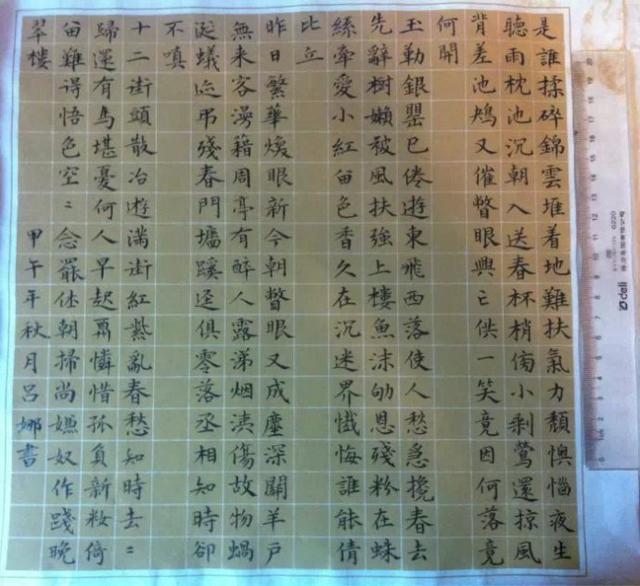 是誰揉碎錦雲堆着地難扶氣力頹懊惱夜生
聽雨枕池沉朝入送春杯梢傍小剩鶯還掠風
背差池鴆又催瞥眼興亡供一笑竟因何落竟
何開
玉勒銀罌已倦遊東飛西落使人愁急攙春去
先辭樹嬾被風扶強上樓魚沫劬恩殘粉在蛛
絲牽愛小紅留色香久在沉迷界懺悔誰能倩
比丘
昨日繁華煥眼新今朝瞥眼又成塵深關羊戶
無来客漫藉周亭有醉人露涕烟洟傷故物蝸
涎蟻迹弔殘春門墻蹊逕俱零落丞相知時卻
不嗔
十二街頭散冶遊滿街紅紫亂春愁知時去〻
歸還有馬堪憂何人早起憐惜孤負新粧倚
留難得悟色空〻念罷休朝掃尚嫌奴作踐晚
翠樓
甲午年秋月呂娜書
deli